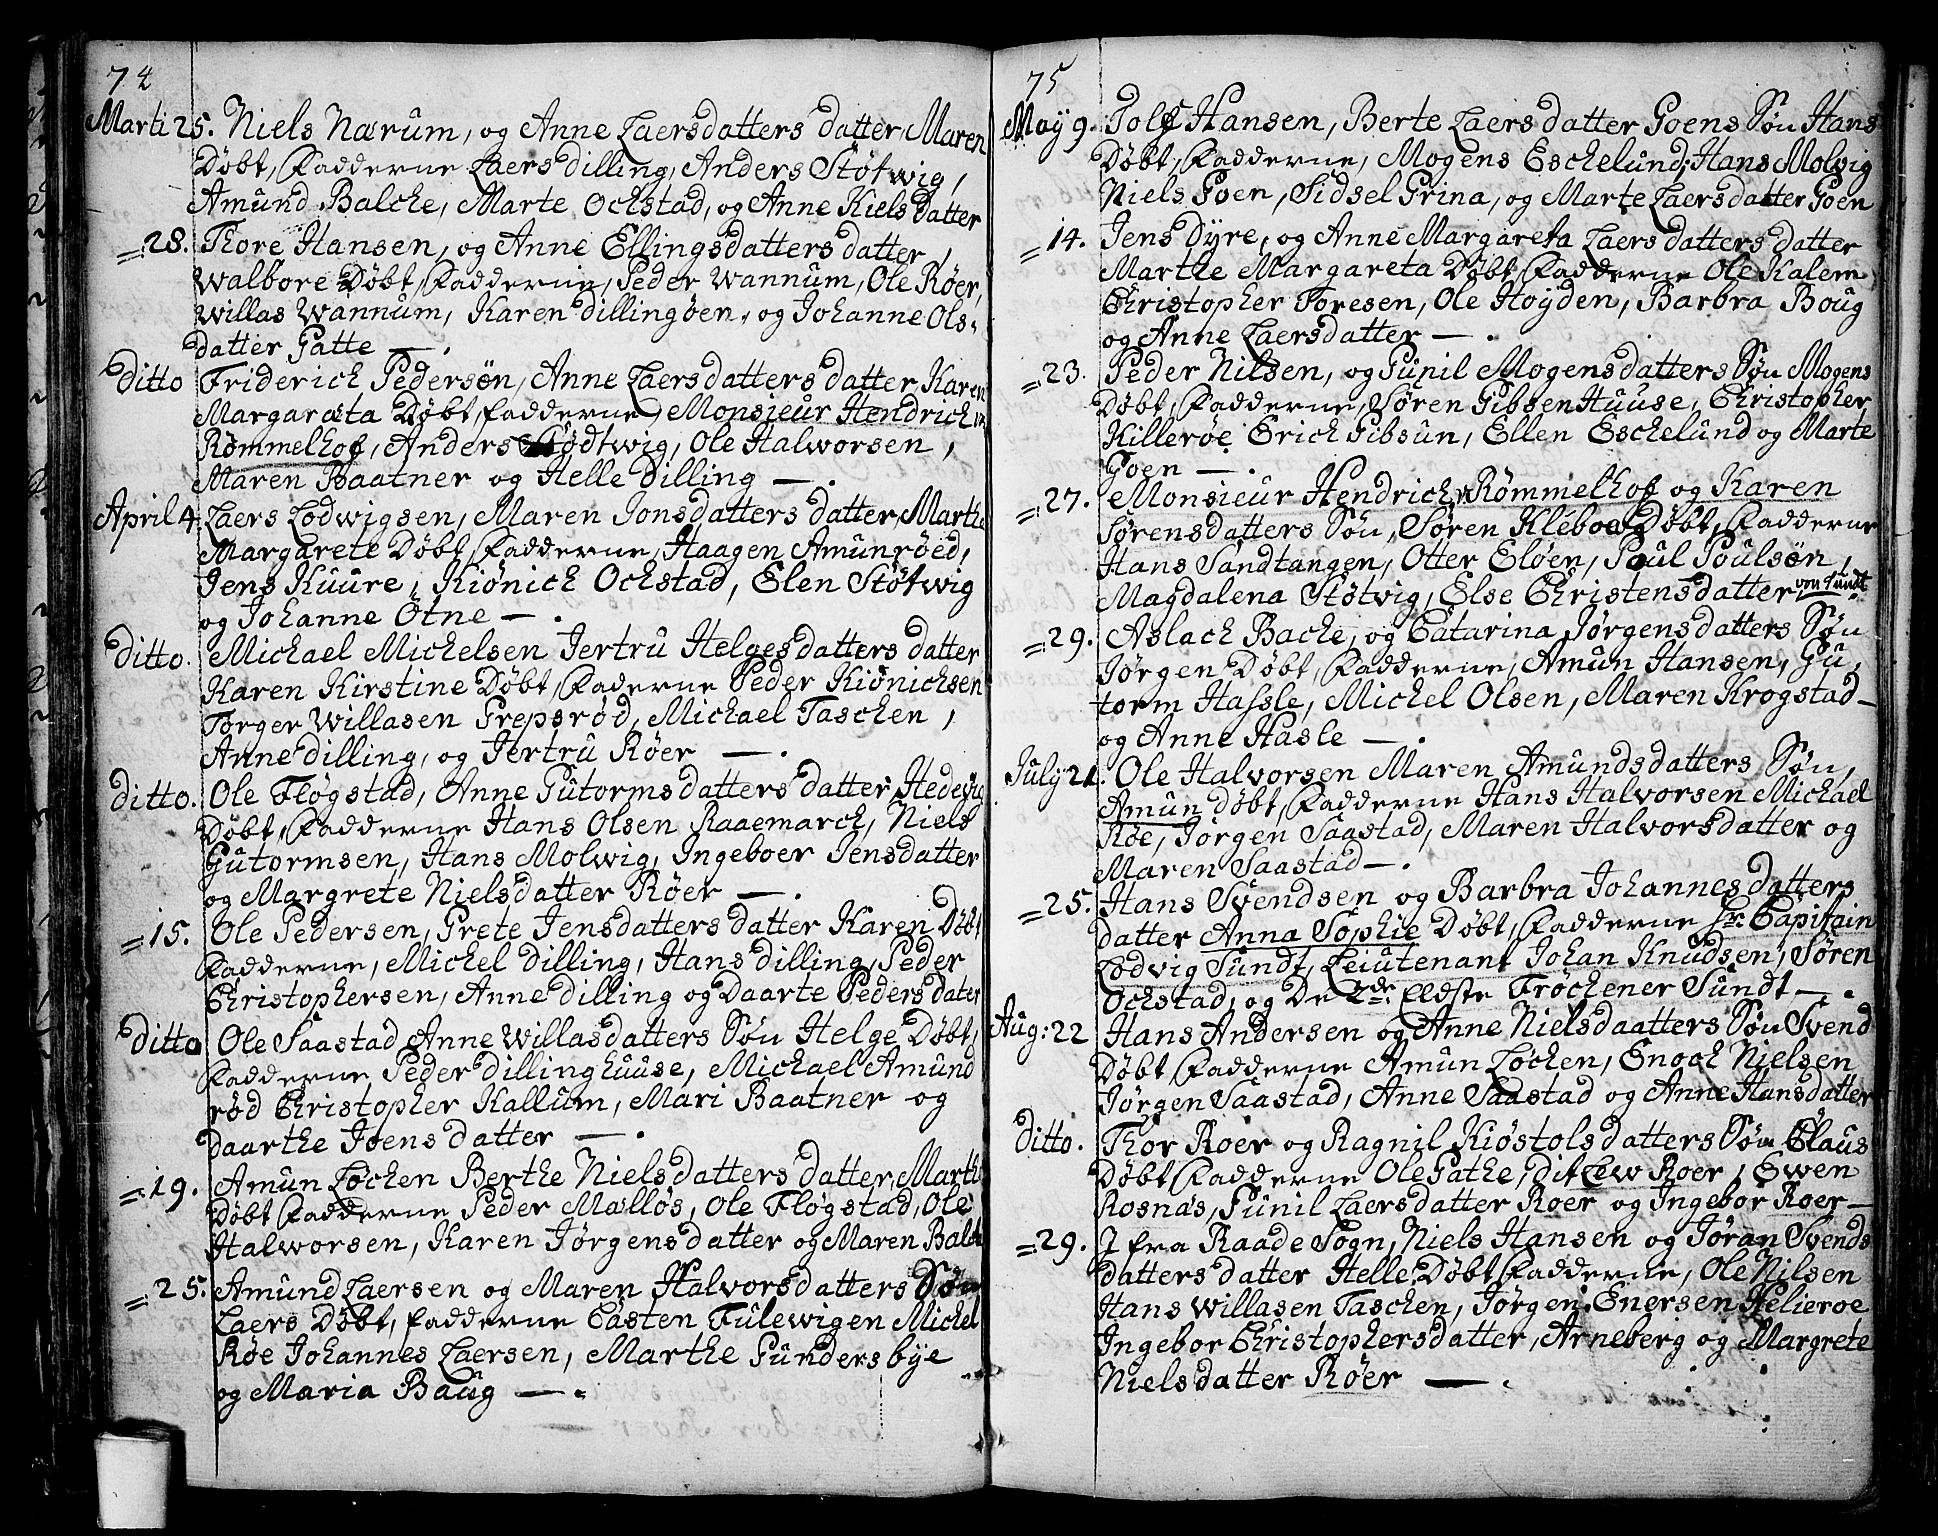 74
Marti 25. Niels Nærum, og Anne Laersdatters datter, Maren
Døbt, Fadderne Laers Dilling, Anders Støtwig,
Amund Balche, Marte Ochstad, og Anne Kielsdatter
= 28. Thore Hansen, og Anne Ellingsdatters datter,
Walbore Døbt, Fadderne, Peder Wannum, Ole Røer,
Willas Wannum, Karen Dillingøen, og Johanne Ols-
datter Gatte —.
Ditto Friderich Pedersøn, Anne Laersdatters datter, Karen
Margaræta Døbt, fadderne, Monsieur Hendrich
Rømmelhof, Anders Stødtwig, Ole Halworsen,
Maren Baatner og Helle Dilling —.
April 4. Laers Lodwigsen, Maren Jonsdatters datter, Marthe
Margarete Døbt, Fadderne, Haagen Amunrøed,
Jens Kuure, Kiønich Ochstad, Elen Støtwig
og Johanne Otne —.
Ditto. Michael Michelsen Jertru Helgesdatters datter
Karen Kirstine Døbt, Faderne Peder Kiønichsen
Torger Willasen Grepsrød, Michael Taschen,
Anne Dilling, og Jertru Røer —.
Ditto. Ole Fløgstad, Anne Gutormsdatters datter, Hedevig
Døbt, Fadderne Hans Olsen Raaemarch, Niels
Gutormsen, Hans Molwig, Ingeboer Jensdatter
og Margrete Nielsdatter Røer —.
= 15. Ole Pedersen, Grete Jensdatters datter Karen Døbt
Fadderne, Michel Dilling, Hans Dilling, Peder
Christophersen, Anne Dilling og Daarte Pedersdater
Ditto Ole Saastad Anne Willasdatters Søn Helge Døbt,
Fadderne Peder Dillinghuuse, Michael Amund
rød Christopher Kallum, Mari Baatner og
Daarthe Joensdatter —.
= 19. Amun Løchen Berthe Nielsdatters datter, Marthe
Døbt Fadderne Peder Mælløs, Ole Fløgstad, Ole
Halworsen, Karen Jørgensdatter og Maren Balch
= 25. Amund Laersen og Maren Halvorsdatters Søn
Laers Døbt, fadderne Casten Fulewigen Michel
Røe Johannes Laersen, Marthe Gundersbye
og Maria Baug —.
75
May 9. Tolf Hansen, Berte Laersdatter Goens Søn Hans
Døbt, Fadderne, Mogens Eschelund, Hans Molvig
Niels Goen, Sidsel Grina, og Marte Laersdatter Goen
= 14. Jens Dyre, og Anne Margareta Laersdatters datter
Marthe Margareta Døbt, Fadderne Ole Kalem
Christopher Toresen, Ole Høyden, Barbra Boug
og Anne Laersdatter —.
= 23. Peder Nilsen, og Gunil Mogensdatters Søn Mogens
Døbt, Fadderne, Søren Gibsen Huuse, Christopher
Killerøe Erich Gibsun, Ellen Eschelund og Marte
Goen —.
= 27. Monsieur Hendrich Rømmelhof og Karen
Sørensdatters Søn, Søren Klebow Døbt, Fadderne
Hans Sandtangen, Otter Eløen, Poul Poulsøn,
Magdalena Støtvig, Else Christensdatter von Sundt
= 29. Aslach Bache, og Catarina Jørgensdatters Søn
Jørgen Døbt, Fadderne, Amun Hansen, Gu,
torm Hassle, Michel Olsen, Maren Krogstad—
og Anne Hasle —.
July 21. Ole Halvorsen Maren Amundsdatters Søn,
Amun Døbt, Fadderne Hans Halvorsen Michael
Røe, Jørgen Saastad, Maren Halvorsdatter og
Maren Saastad —.
= 25. Hans Svendsen og Barbra Johannesdatters
datter Anna Sophie Døbt, Fadderne Hr. Capitain
Lodvig Sundt, Leiutenant Johan Knudsen, Søren
Ochstad, og De 2de Eldste Frøchener Sundt —.
Aug: 22 Hans Andersen og Anne Nielsdaatters Søn Svend
Døbt, Fadderne Amun Løchen, Enoch Nielsen
Jørgen Saastad, Anne Saastad og Anne Hansdatter
Ditto. Thor Roer og Ragnil Kiøstolsdatters Søn Claus
Døbt, Fadderne Ole Gathe, Ditlew Roer, Ewen
Rosnæs, Gunil Laersdatter Roer og Ingebor Roer —
= 29. I fra Raade Sogn, Niels Hansen og Jøran Svends
datters datter Helle Døbt, Fadderne, Ole Nilsen
Hans Willasen Taschen, Jørgen Enersen Helieroe
Ingebor Christophersdatter, Arneberg og Margrete
Nielsdatter Røer —.